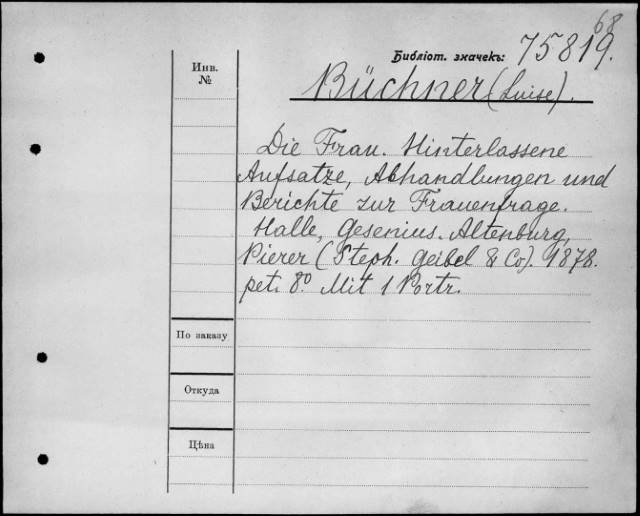 68
Библіот. значекъ: 75819.
Инв.
№
Büchner (Luise).
Die Frau. Hinterlassene
Aufsatze, Abhandlungen und
Berichte zur Frauenfrage.
Halle, Gesenius. Altenburg,
Pierer (Steph. Geibel & Co). 1878.
pet. 8º. Mit 1 Portr.
По заказу
Откуда
Цѣна